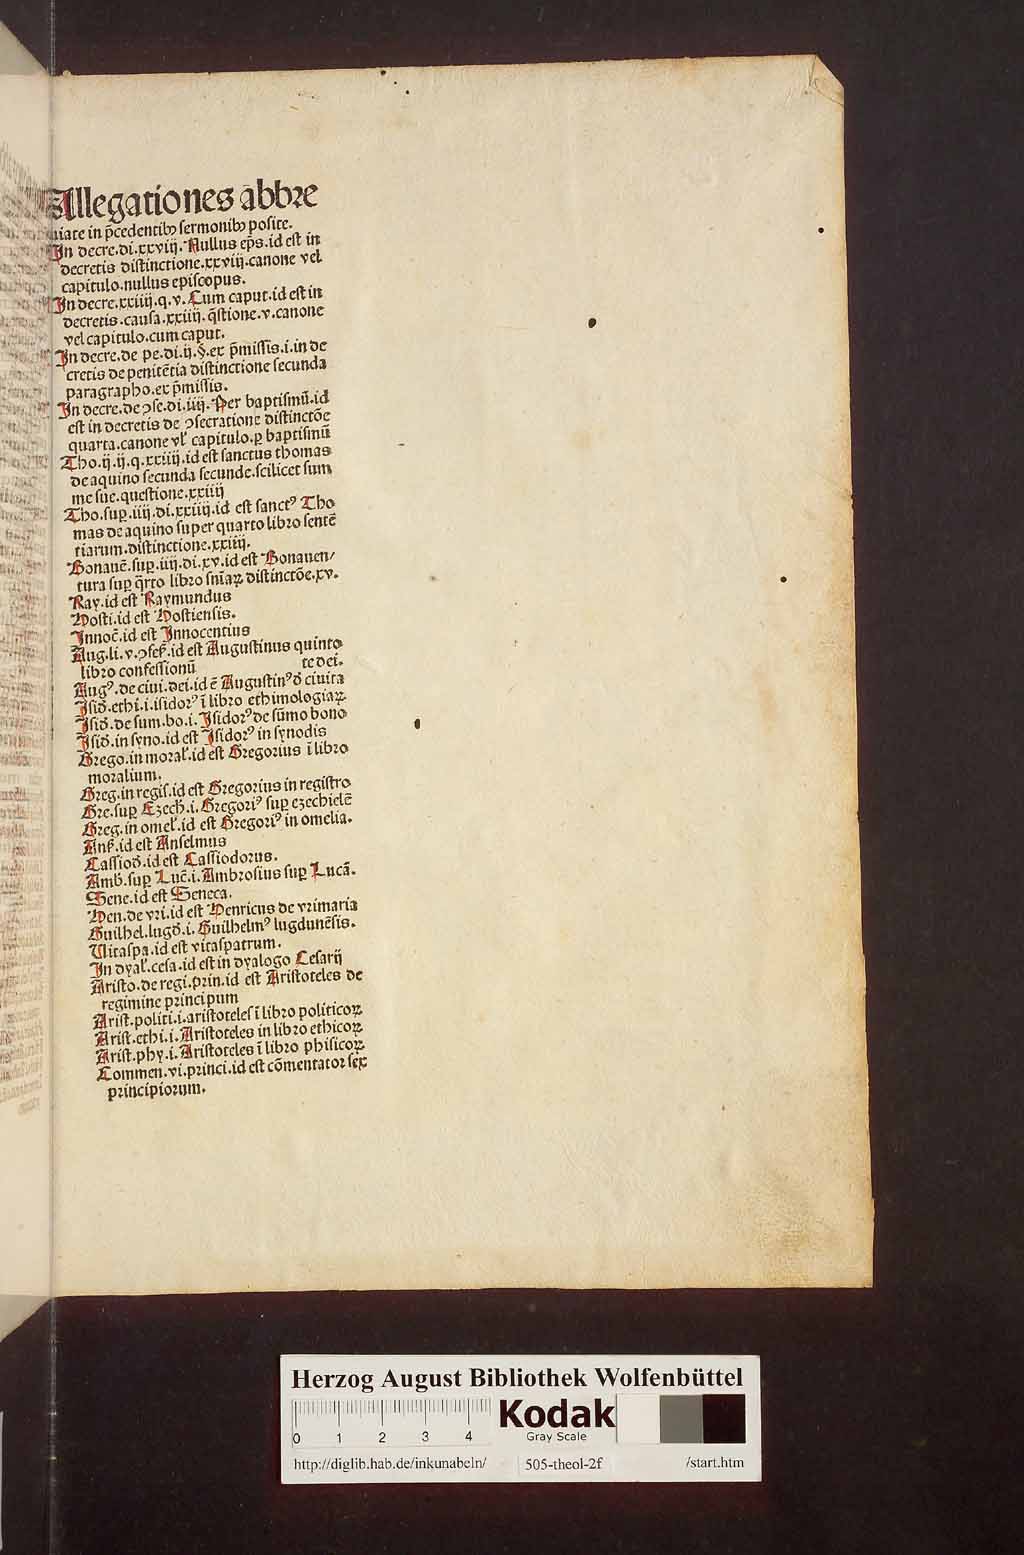 Allegationes abbre
uiate in p̄cedentibꝫ sermonibꝫ posite.
In decre.di.xxviij. Nullus ep̄s.id est in
decretis distinctione.xxviij.canone vel
capitulo.nullus episcopus.
In decre.xxiiij.q.v. Cum caput.id est in
decretis.causa.xxiiij.q̄stione.v.canone
vel capitulo.cum caput.
In decre.de pe.di.ij.§.ex p̄missis.i.in de
cretis de penitētia distinctione secunda
paragrapho.ex p̄missis.
In decre.de ꝯse.di.iiij. Per baptismū.id
est in decretis de ꝯsecratione distinctōe
quarta.canone vl' capitulo.ꝑ baptismū
Tho.ij.ij.q.xxiiij.id est sanctus thomas
de aquino secunda secunde.scilicet sum
me sue.questione.xxiiij
Tho.suꝑ.iiij.di.xxiiij.id est sanctꝰ Tho
mas de aquino super quarto libro sentē
tiarum.distinctione.xxiiij.
Bonauē.suꝑ.iiij.di.xv.id est Bonauen/
tura suꝑ q̄rto libro sniaꝝ distinctōe.xv.
Ray.id est Raymundus
Hosti.id est Hostiensis.
Innoc̄.id est Innocentius
Aug.li.v.ꝯfes̄.id est Augustinus quinto
libro confessionū te dei.
Augꝰ.de ciui.dei.id ē Augustinꝰ d̄ ciuita
Isid̄.ethi.i.isidorꝰ ī libro ethimologiaꝝ
Isid̄.de sum.bo.i. Isidorꝰ de sūmo bono
Isid̄.in syno.id est Isidorꝰ in synodis
Grego.in moral'.id est Gregorius ī libro
moralium.
Greg.in regis.id est Gregorius in registro
Gre.suꝑ Ezech.i. Gregoriꝰ suꝑ ezechielē
Greg.in omel'.id est Gregoriꝰ in omelia.
Ans̄.id est Anselmus
Cassiod̄.id est Cassiodorus.
Amb̄.suꝑ Luc̄.i. Ambrosius suꝑ Lucā.
Sene.id est Seneca.
Hen.de vri.id est Henricus de vrimaria
Guilhel.lugd̄.i. Guilhelmꝰ lugdunēsis.
Vitaspa.id est vitaspatrum.
In dyal'.cesa.id est in dyalogo Cesarij
Aristo.de regi.prin.id est Aristoteles de
regimine principum
Arist.politi.i.aristoteles ī libro politicoꝝ
Arist.ethi.i. Aristoteles in libro ethicoꝝ
Arist.phy.i. Aristoteles ī libro phisicoꝝ
Commen.vi.princi.id est cōmentator sex
principiorum.
Herzog August Bibliothek Wolfenbüttel
0 1 2 3 4
Kodak
Gray Scale
http://diglib.hab.de/inkunabeln/ 505-theol-2f /start.htm